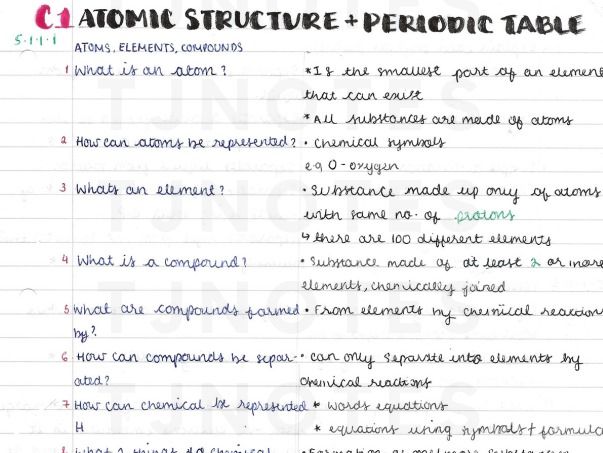 C1 ATOMIC STRUCTURE + PERIODIC TABLE
5.1.1.1 ATOMS, ELEMENTS, COMPOUNDS
1 What is an atom? * Is the smallest part of an element
that can exist
* All substances are made of atoms
2 How can atoms be represented? • Chemical symbols
eg O - oxygen
3 Whats an element? • Substance made up only of atoms
with same no. of protons
↳ there are 100 different elements
4 What is a compound? • Substance made of at least 2 or more
elements, chemically joined
5 What are compounds formed • From elements by chemical reactions
by?
6 How can compounds be separ- • can only separate into elements by
ated? chemical reactions
7 How can chemical be represented * words equations
H * equations using symbols + formula
8 What 2 things do chemical • Formation of
TJNOTES
TJNOTES
TJNOTES